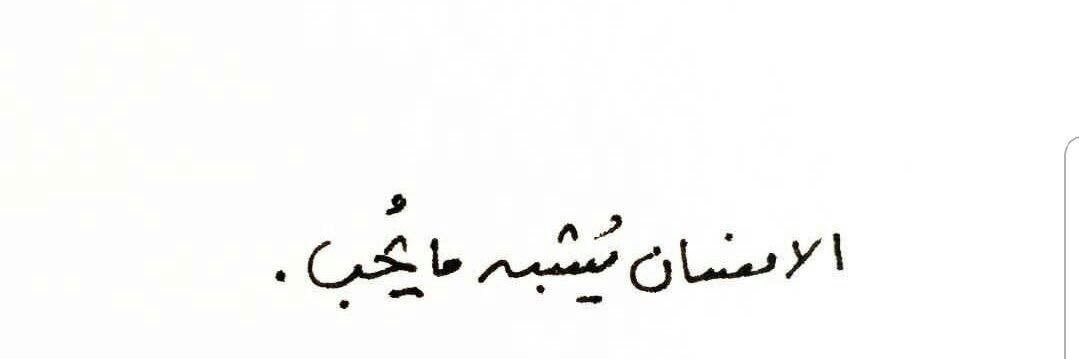 الانسان يُشبه ما يُحب.